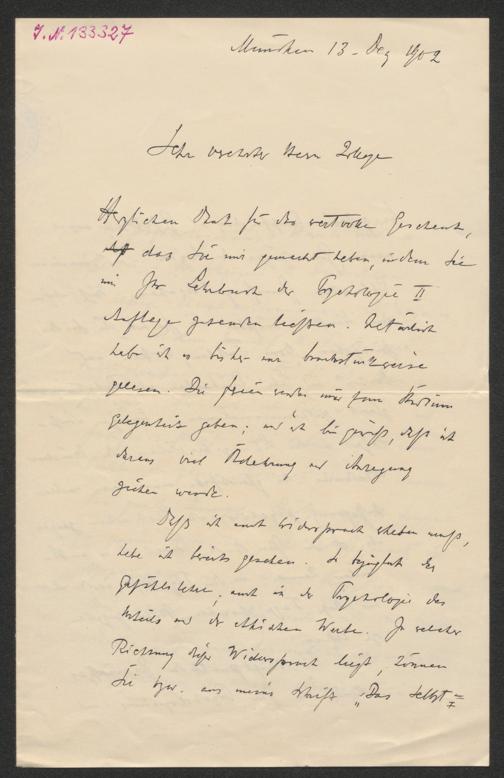 J. N. 133327
München 13. Dez 1902
Sehr verehrter Herr Kollege
Herzlichen Dank für das wertvolle Geschenk,
das Sie mir gemacht haben, indem Sie
mir Ihr Lehrbuch der Psychologie II
Auflage zusenden liessen. Natürlich
habe ich es bisher nur bruchstückweise
gelesen. Die Ferien werden mir zum Studium
Gelegenheit geben; und ich bin gewiß, daß ich
daraus viel Belehrung und Anregung
ziehen werde.
Daß ich auch Widerspruch erheben muß,
habe ich bereits gesehen. So bezüglich der
Gefühlslehre, auch in der Psychologie des
Urteils und der ethischen Werte. In welcher
Richtung dieser Widerspruch liegt, können
Sie bzw. aus meiner Schrift „Das Selbst=